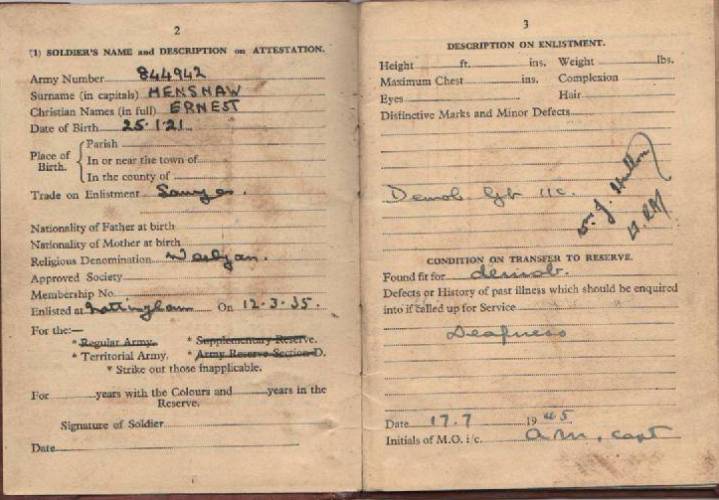 2
(1) SOLDIER'S NAME and DESCRIPTION on ATTESTATION.
Army Number 844942
Surname (in capitals) HENSHAW
Christian Names (in full) ERNEST
Date of Birth 25.1.21.
Place of Birth. Parish
In or near the town of
In the county of
Trade on Enlistment Sawyer.
Nationality of Father at birth
Nationality of Mother at birth
Religious Denomination Wesleyan.
Approved Society
Membership No.
Enlisted at Nottingham On 12.3.35.
For the:—
* Regular Army. * Supplementary Reserve.
* Territorial Army. * Army Reserve Section D.
* Strike out those inapplicable.
For years with the Colours and years in the
Reserve.
Signature of Soldier
Date
3
DESCRIPTION ON ENLISTMENT.
Height ft. ins. Weight lbs.
Maximum Chest ins. Complexion
Eyes Hair
Distinctive Marks and Minor Defects
Demob Gp 11c.
CONDITION ON TRANSFER TO RESERVE.
Found fit for demob.
Defects or History of past illness which should be enquired
into if called up for Service
Deafness
Date 17.7 1945
Initials of M.O. i/c. capt